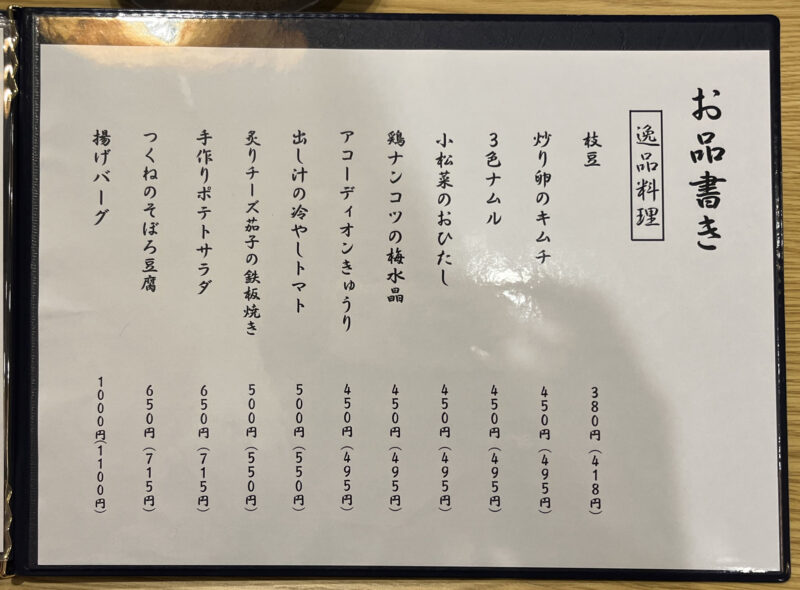 お品書き
逸品料理
枝豆 380円(418円)
炒り卵のキムチ 450円(495円)
3色ナムル 450円(495円)
小松菜のおひたし 450円(495円)
鶏ナンコツの梅水晶 450円(495円)
アコーディオンきゅうり 450円(495円)
出し汁の冷やしトマト 500円(550円)
炙りチーズ茄子の鉄板焼き 500円(550円)
手作りポテトサラダ 650円(715円)
つくねのそぼろ豆腐 650円(715円)
揚げバーグ 1000円(1100円)